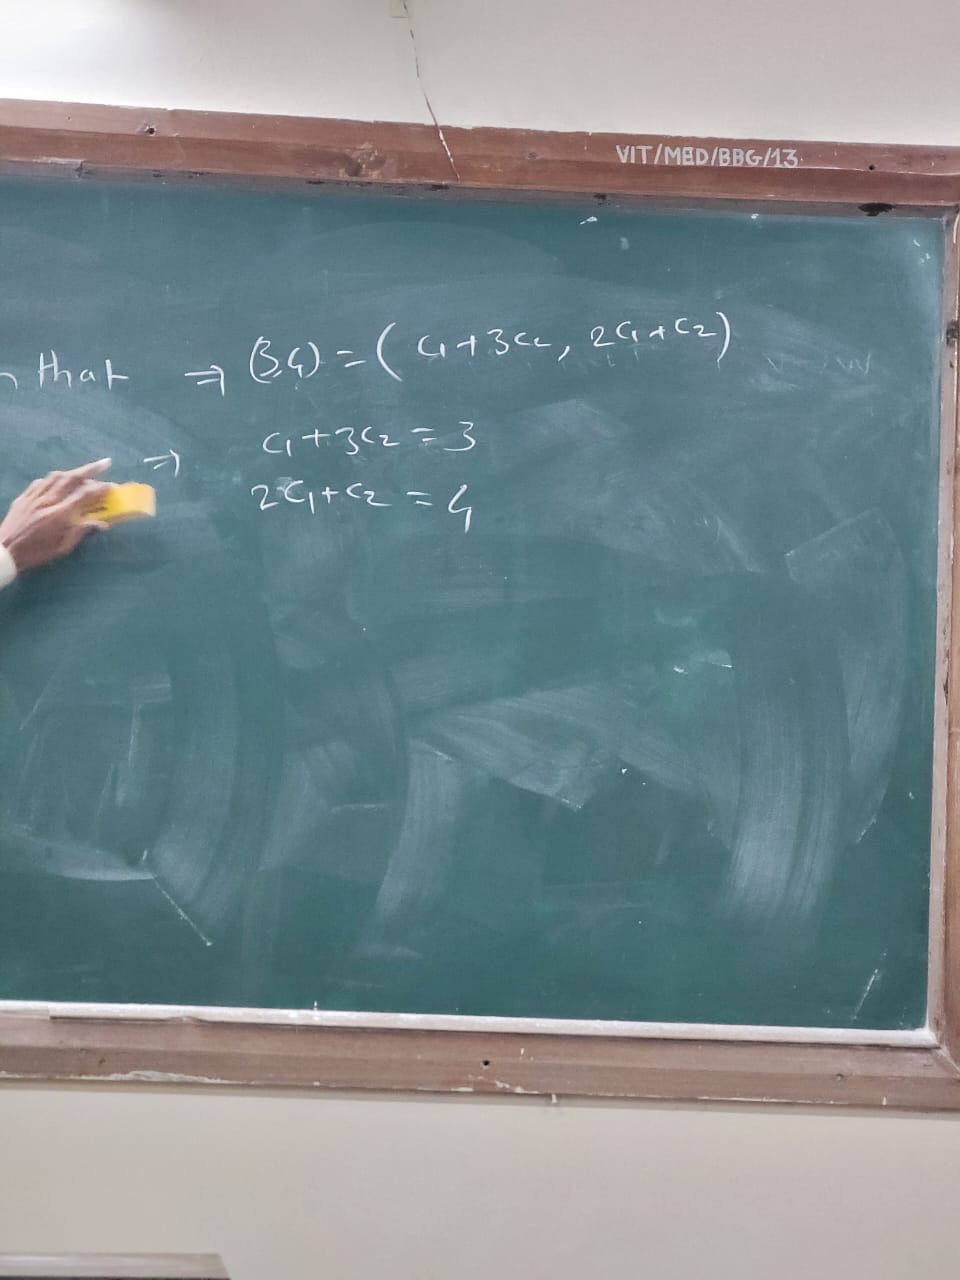 VIT/MED/BBG/13
that ⇒ (3,4) = ( c₁+3c₂, 2c₁+c₂)
⇒ c₁+3c₂ = 3
2c₁+c₂ = 4